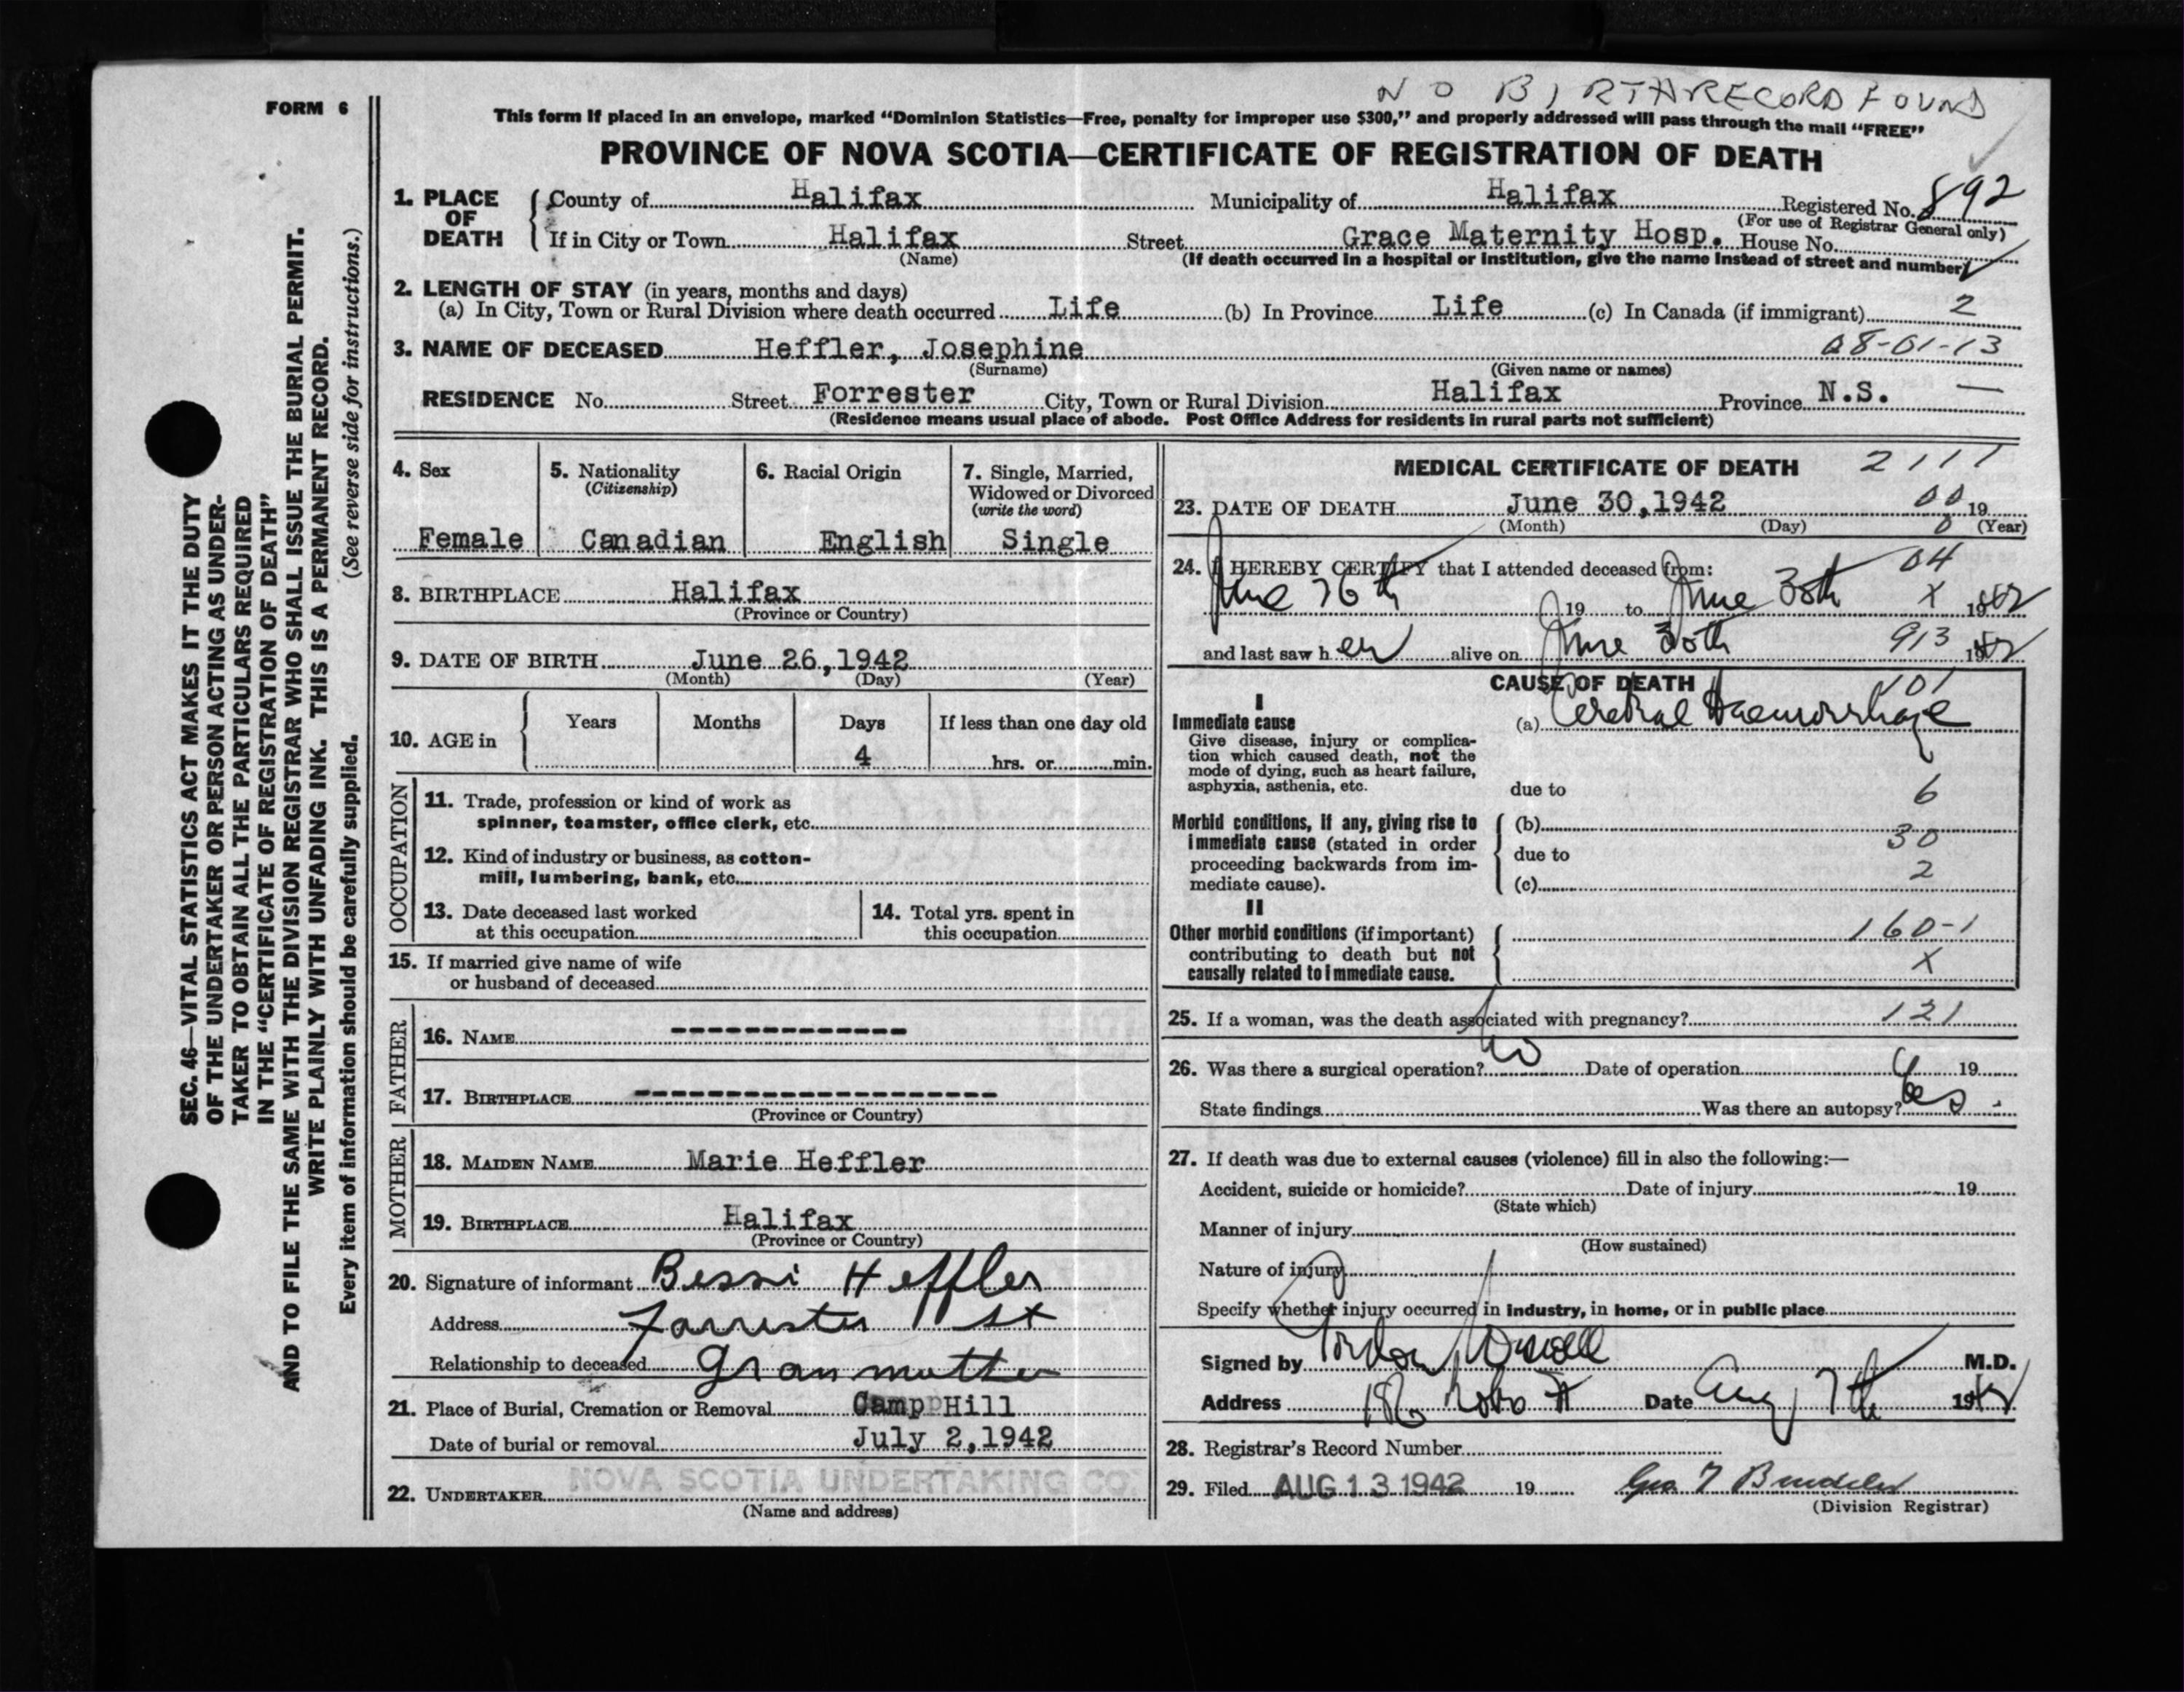 NO BIRTH RECORD FOUND
FORM 6
This form if placed in an envelope, marked "Dominion Statistics—Free, penalty for improper use $300," and properly addressed will pass through the mail "FREE"
PROVINCE OF NOVA SCOTIA—CERTIFICATE OF REGISTRATION OF DEATH
1. PLACE OF DEATH
County of Halifax Municipality of Halifax Registered No. 892
(For use of Registrar General only)
If in City or Town Halifax Street Grace Maternity Hosp. House No.
(Name) (If death occurred in a hospital or institution, give the name instead of street and number)
2. LENGTH OF STAY (in years, months and days)
(a) In City, Town or Rural Division where death occurred Life (b) In Province Life (c) In Canada (if immigrant) 2
3. NAME OF DECEASED Heffler, Josephine 08-01-13
(Surname) (Given name or names)
RESIDENCE No. Street Forrester City, Town or Rural Division Halifax Province N.S. —
(Residence means usual place of abode. Post Office Address for residents in rural parts not sufficient)
4. Sex
Female
5. Nationality
(Citizenship)
Canadian
6. Racial Origin
English
7. Single, Married,
Widowed or Divorced
(write the word)
Single
8. BIRTHPLACE Halifax
(Province or Country)
9. DATE OF BIRTH June 26, 1942
(Month) (Day) (Year)
10. AGE in
Years Months Days If less than one day old
4 hrs. or min.
OCCUPATION
11. Trade, profession or kind of work as
spinner, teamster, office clerk, etc.
12. Kind of industry or business, as cotton-
mill, lumbering, bank, etc.
13. Date deceased last worked
at this occupation
14. Total yrs. spent in
this occupation
15. If married give name of wife
or husband of deceased
FATHER
16. NAME -------------
17. BIRTHPLACE --------------------
(Province or Country)
MOTHER
18. MAIDEN NAME Marie Heffler
19. BIRTHPLACE Halifax
(Province or Country)
20. Signature of informant Bessi Heffler
Address Forrester St
Relationship to deceased Granmother
21. Place of Burial, Cremation or Removal Camp Hill
Date of burial or removal July 2, 1942
22. UNDERTAKER NOVA SCOTIA UNDERTAKING CO.
(Name and address)
MEDICAL CERTIFICATE OF DEATH 2111
23. DATE OF DEATH June 30, 1942 00 19
(Month) (Day) 0 (Year)
24. I HEREBY CERTIFY that I attended deceased from: 04
June 26th 19 to June 30th X 1942
and last saw her alive on June 30th 913 1942
CAUSE OF DEATH 101
I
Immediate cause
(a) Cerebral Haemorrhage
Give disease, injury or complica-
tion which caused death, not the
mode of dying, such as heart failure,
asphyxia, asthenia, etc.
due to 6
Morbid conditions, if any, giving rise to
immediate cause (stated in order
proceeding backwards from im-
mediate cause).
(b) 30
due to
(c) 2
II
Other morbid conditions (if important)
contributing to death but not
causally related to immediate cause.
160-1
X
25. If a woman, was the death associated with pregnancy? 121
26. Was there a surgical operation? No Date of operation 19
State findings Was there an autopsy? Yes.
27. If death was due to external causes (violence) fill in also the following:—
Accident, suicide or homicide? Date of injury 19
(State which)
Manner of injury
(How sustained)
Nature of injury
Specify whether injury occurred in industry, in home, or in public place
Signed by Gordon M.D.
Address Date Aug 7th 1942
28. Registrar's Record Number
29. Filed AUG 13 1942 19 Geo
(Division Registrar)
SEC. 46—VITAL STATISTICS ACT MAKES IT THE DUTY
OF THE UNDERTAKER OR PERSON ACTING AS UNDER-
TAKER TO OBTAIN ALL THE PARTICULARS REQUIRED
IN THE "CERTIFICATE OF REGISTRATION OF DEATH"
AND TO FILE THE SAME WITH THE DIVISION REGISTRAR WHO SHALL ISSUE THE BURIAL PERMIT.
WRITE PLAINLY WITH UNFADING INK. THIS IS A PERMANENT RECORD.
Every item of information should be carefully supplied. (See reverse side for instructions.)